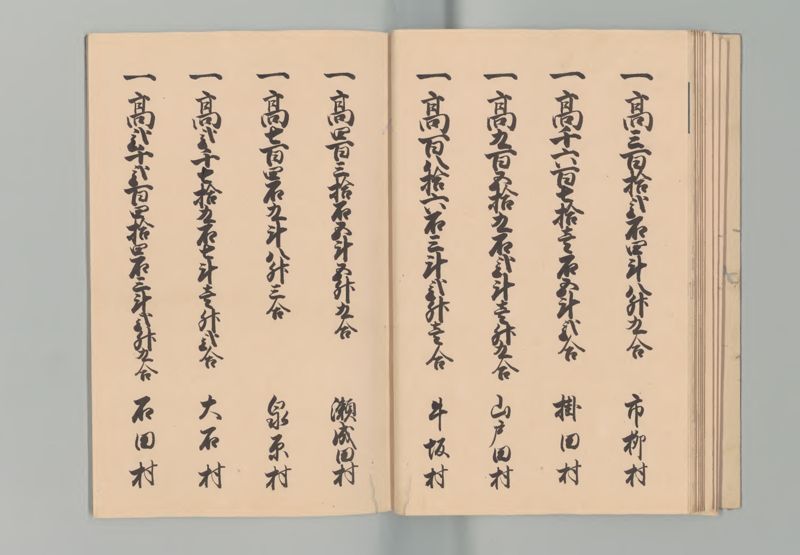 一高三百拾弐石四斗八升九合 市柳村
一高千六百七拾壱石五斗弐合 掛田村
一高九百五拾九石弐斗壱升九合 山戸田村
一高百八拾六石三斗弐升壱合 牛坂村
一高四百三拾石五斗五升九合 瀬成田村
一高七百四石九斗八升三合 泉原村
一高弐千七拾九石七斗壱升弐合 大石村
一高弐千弐百四拾四石三斗弐升九合 石田村